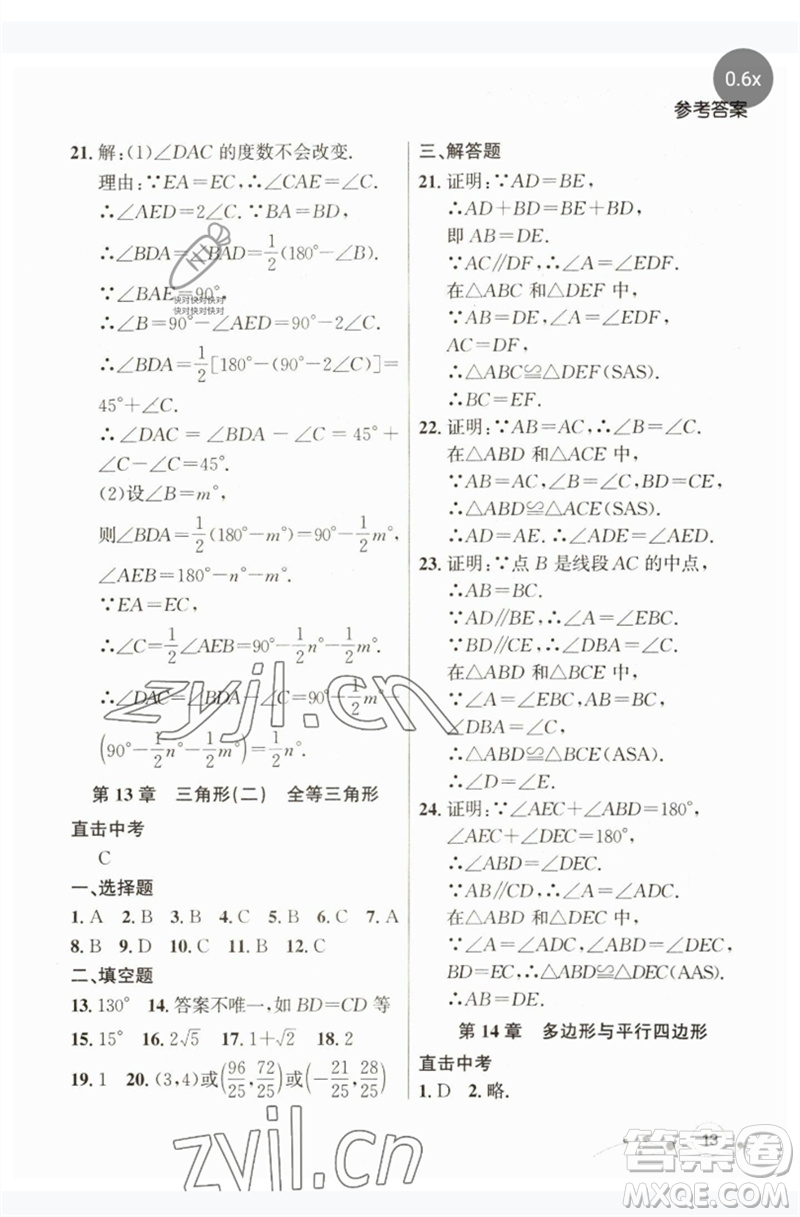 0.6x
参考答案
21. 解:(1)∠DAC 的度数不会改变.
理由:∵EA=EC,∴∠CAE=∠C.
∴∠AED=2∠C. ∵BA=BD,
∴∠BDA=∠BAD=1/2(180°-∠B).
∵∠BAE=90°,
∴∠B=90°-∠AED=90°-2∠C.
∴∠BDA=1/2[180°-(90°-2∠C)]=
45°+∠C.
∴∠DAC=∠BDA-∠C=45°+
∠C-∠C=45°.
(2)设∠B=m°,
则∠BDA=1/2(180°-m°)=90°-1/2m°,
∠AEB=180°-n°-m°.
∵EA=EC,
∴∠C=1/2∠AEB=90°-1/2n°-1/2m°.
∴∠DAC=∠BDA-∠C=90°-1/2m°-
(90°-1/2n°-1/2m°)=1/2n°.
第 13 章 三角形(二) 全等三角形
直击中考
C
一、选择题
1. A 2. B 3. B 4. C 5. B 6. B 7. A
8. B 9. D 10. C 11. B 12. C
二、填空题
13. 130° 14. 答案不唯一,如 BD=CD 等
15. 15° 16. 2√5 17. 1+√2 18. 2
19. 1 20. (3,4)或(96/25,72/25)或(-21/25,28/25)
三、解答题
21. 证明:∵AD=BE,
∴AD+BD=BE+BD,
即 AB=DE.
∵AC∥DF,∴∠A=∠EDF.
在△ABC 和△DEF 中,
∵AB=DE,∠A=∠EDF,
AC=DF,
∴△ABC≌△DEF(SAS).
∴BC=EF.
22. 证明:∵AB=AC,∴∠B=∠C.
在△ABD 和△ACE 中,
∵AB=AC,∠B=∠C,BD=CE,
∴△ABD≌△ACE(SAS).
∴AD=AE. ∴∠ADE=∠AED.
23. 证明:∵点 B 是线段 AC 的中点,
∴AB=BC.
∵AD∥BE,∴∠A=∠EBC.
∵BD∥CE,∴∠DBA=∠C.
在△ABD 和△BCE 中,
∵∠A=∠EBC,AB=BC,
∠DBA=∠C,
∴△ABD≌△BCE(ASA).
∴∠D=∠E.
24. 证明:∵∠AEC+∠ABD=180°,
∠AEC+∠DEC=180°,
∴∠ABD=∠DEC.
∵AB∥CD,∴∠A=∠EDC.
在△ABD 和△DEC 中,
∵∠A=∠ADC,∠ABD=∠DEC,
BD=EC,∴△ABD≌△DEC(AAS).
∴AB=DE.
第 14 章 多边形与平行四边形
直击中考
1. D 2. 略.
13
快对快对快对
快对快对快对
zyjl.cn
zyjl.cn
答案卷
MXQE.COM